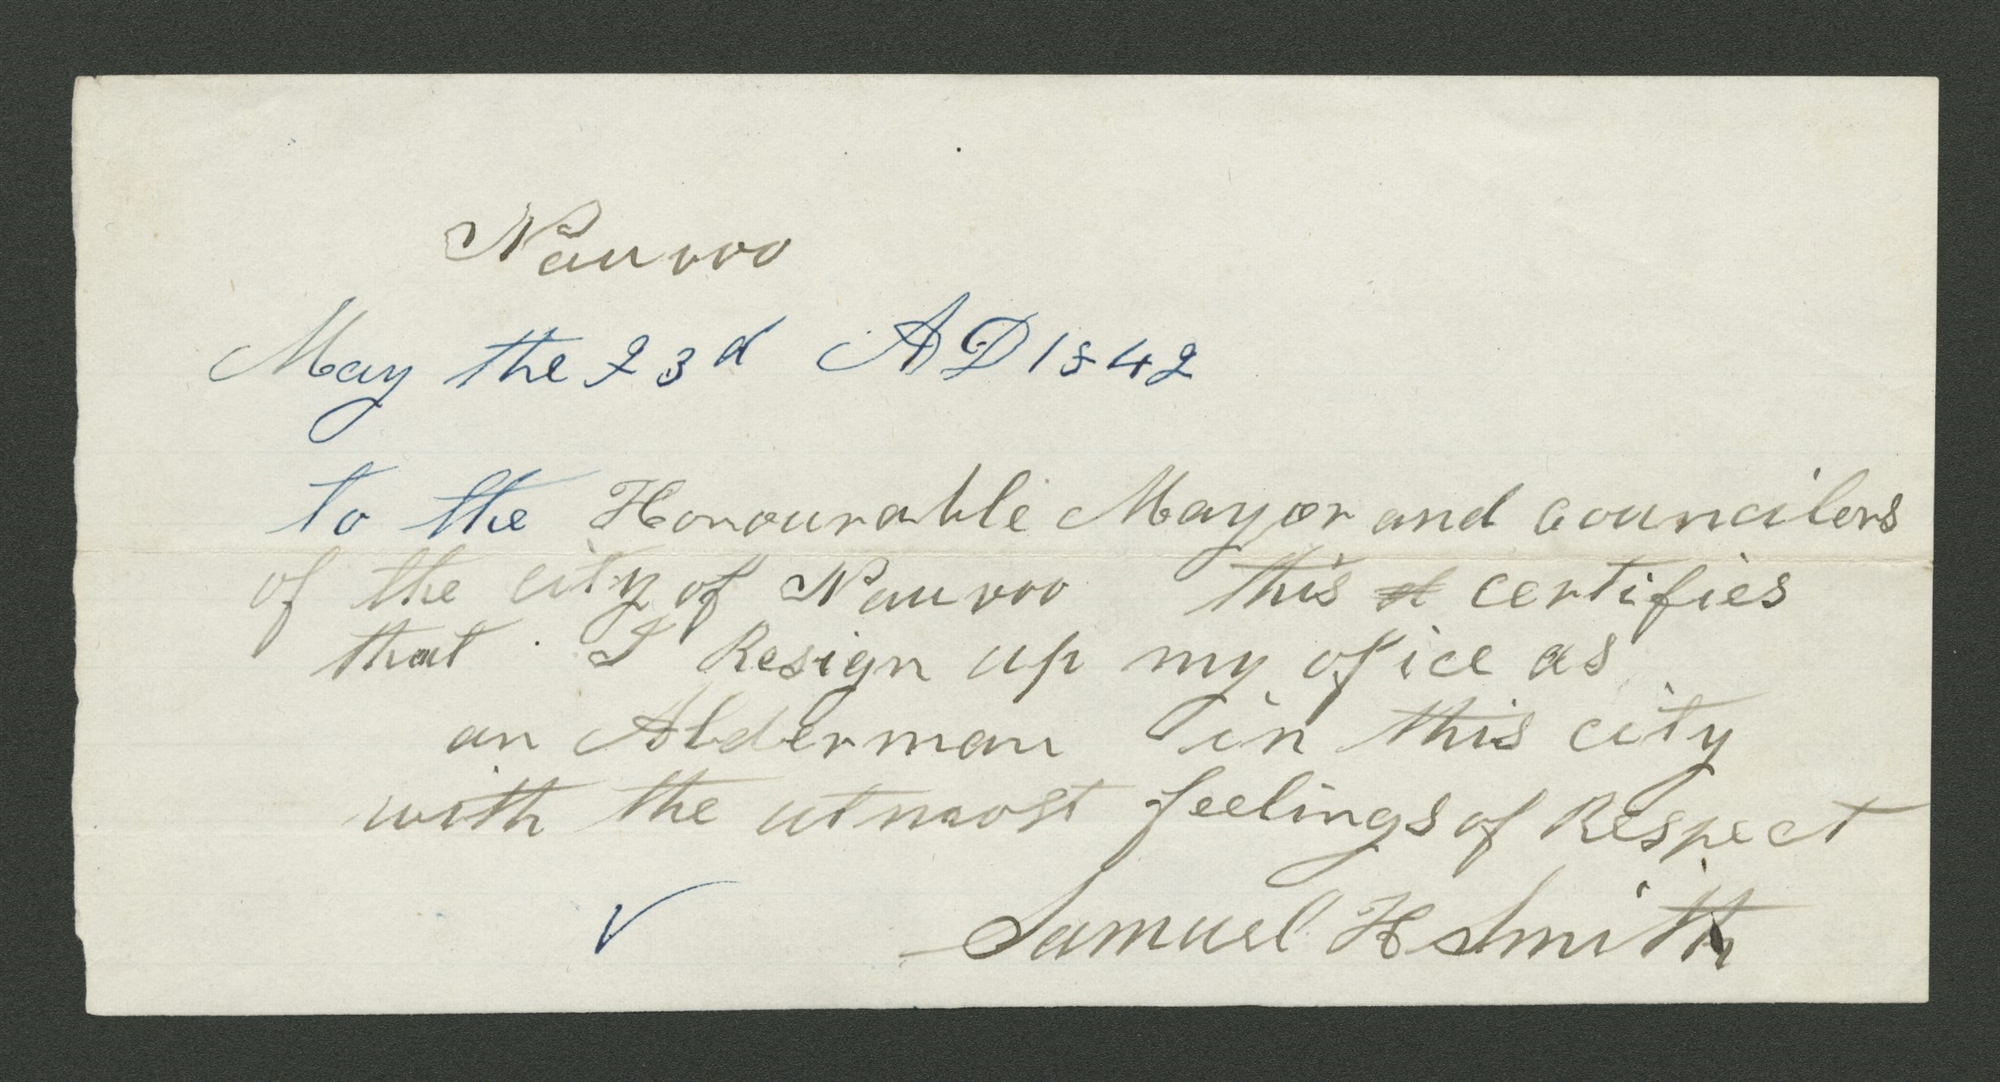 Nauvoo
May the 23d AD 1842
to the Honourable Mayor and councilers
of the city of Nauvoo this certifies
that I Resign up my ofice as
an Alderman in this city
with the utmost feelings of Respect
Samuel H Smith